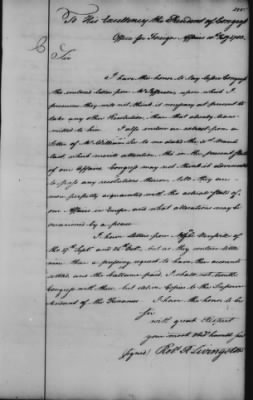 To His Excellency the President of Congress
Office for Foreign Affairs 10th Feby 1783.
Sir
I have the honor to lay before Congress
the enclosed letter from Mr Jefferson, upon which I
presume they will not think it necessary at present to
take any other Resolution, than that already trans
mitted to him. I also enclose an extract from a
letter of Mr William Lee to me dated the 31st March
last, which merits attention, tho in the present State
of our Affairs Congress may not think it adviseable
to pass any resolutions thereon till they are
more perfectly acquainted with the actual state of
our Affairs in Europe, and what alterations may be
occasioned by a peace.
I have letters from Messrs
of the Sept and Octr but as they contain little
more than a pressing request to have their accounts
settled and the ballance paid, I shall not trouble
Congress with them but deliver Copies to the Superin
tendant of the Finances
I have the honor to be
Sir
with great Respect
your most obedt humble Servt
(signed) Robt R Livingston